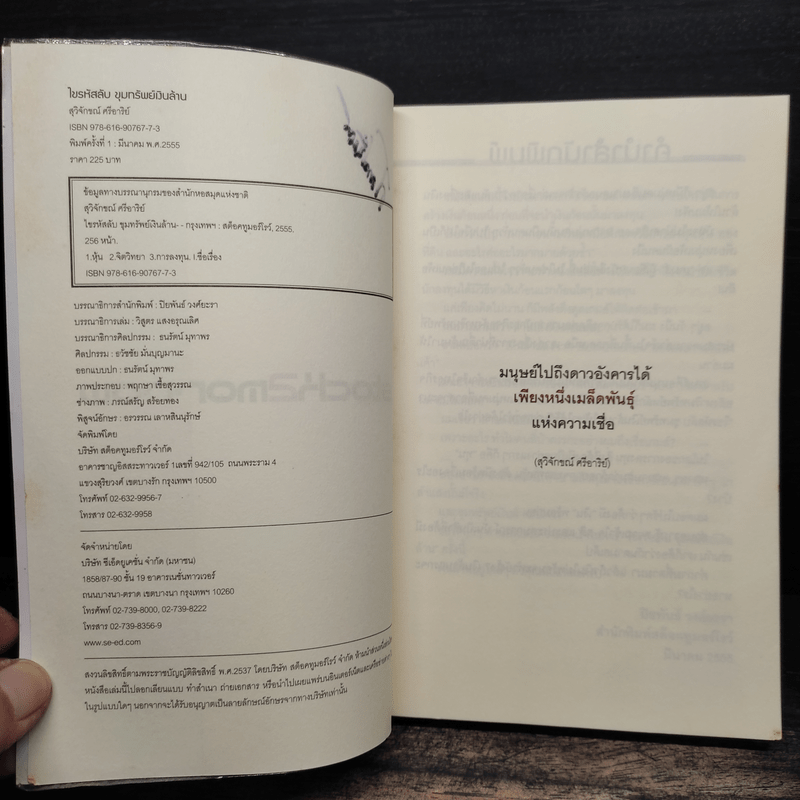 ไขรหัสลับ ขุมทรัพย์เงินล้าน
สุวิจักขณ์ ศรีอาริย์
ISBN 978-616-90767-7-3
พิมพ์ครั้งที่ 1 : มีนาคม พ.ศ.2555
ราคา 225 บาท
ข้อมูลทางบรรณานุกรมของสำนักหอสมุดแห่งชาติ
สุวิจักขณ์ ศรีอาริย์
ไขรหัสลับ ขุมทรัพย์เงินล้าน-- กรุงเทพฯ : สต็อคทูมอร์โรว์, 2555.
256 หน้า.
1.หุ้น 2.จิตวิทยา 3.การลงทุน. I.ชื่อเรื่อง
ISBN 978-616-90767-7-3
บรรณาธิการสำนักพิมพ์ : ปิยพันธ์ วงศ์ยะรา
บรรณาธิการเล่ม : วิสูตร แสงอรุณเลิศ
บรรณาธิการศิลปกรรม : ธนรัตน์ มุทาพร
ศิลปกรรม : ธวัชชัย มั่นบุญมานะ
ออกแบบปก : ธนรัตน์ มุทาพร
ภาพประกอบ : พฤกษา เชื้อสุวรรณ
ช่างภาพ : ภรณ์สรัญ สร้อยทอง
พิสูจน์อักษร : อรวรรณ เลาหสินนุรักษ์
จัดพิมพ์โดย
บริษัท สต็อคทูมอร์โรว์ จำกัด
อาคารชาญอิสสระทาวเวอร์ 1เลขที่ 942/105 ถนนพระราม 4
แขวงสุริยวงศ์ เขตบางรัก กรุงเทพฯ 10500
โทรศัพท์ 02-632-9956-7
โทรสาร 02-632-9958
จัดจำหน่ายโดย
บริษัท ซีเอ็ดยูเคชั่น จำกัด (มหาชน)
1858/87-90 ชั้น 19 อาคารเนชั่นทาวเวอร์
ถนนบางนา-ตราด เขตบางนา กรุงเทพฯ 10260
โทรศัพท์ 02-739-8000, 02-739-8222
โทรสาร 02-739-8356-9
www.se-ed.com
สงวนลิขสิทธิ์ตามพระราชบัญญัติลิขสิทธิ์ พ.ศ.2537 โดยบริษัท สต็อคทูมอร์โรว์ จำกัด ห้ามนำส่วนหนึ่งส่วนใด
หนังสือเล่มนี้ไปลอกเลียนแบบ ทำสำเนา ถ่ายเอกสาร หรือนำไปเผยแพร่บนอินเตอร์เน็ตและเครือข่าย
ในรูปแบบใดๆ นอกจากจะได้รับอนุญาตเป็นลายลักษณ์อักษรจากทางบริษัทเท่านั้น
มนุษย์ไปถึงดาวอังคารได้
เพียงหนึ่งเมล็ดพันธุ์
แห่งความเชื่อ
(สุวิจักขณ์ ศรีอาริย์)